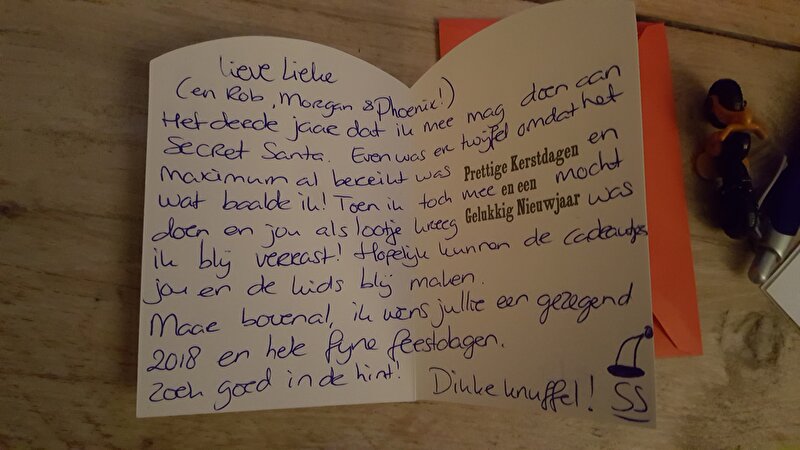 Lieve Lieke
(en Rob, Morgan & Phoenix!)
Het derde jaar dat ik mee mag doen aan
Secret Santa. Even was er twijfel omdat het
maximum al bereikt was en
wat baalde ik! Toen ik toch mee mocht
doen en jou als lootje kreeg was
ik blij verrast! Hopelijk kunnen de cadeautjes
jou en de kids blij maken.
Maar bovenal, ik wens jullie een gezegend
2018 en hele fijne feestdagen.
Zoek goed in de hint! Dikke knuffel!
SS
Prettige Kerstdagen
en een
Gelukkig Nieuwjaar